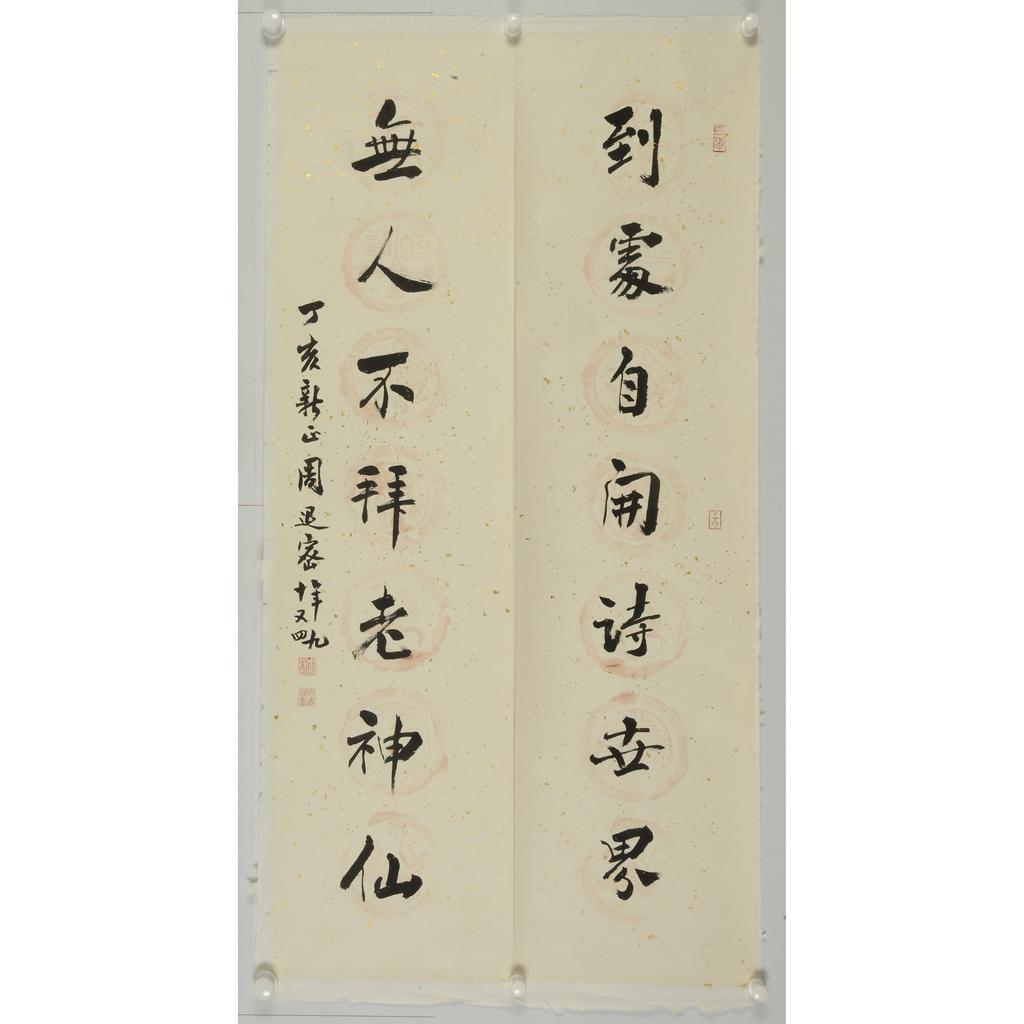 到處自開詩世界
無人不拜老神仙
丁亥新正周退密年九十又四